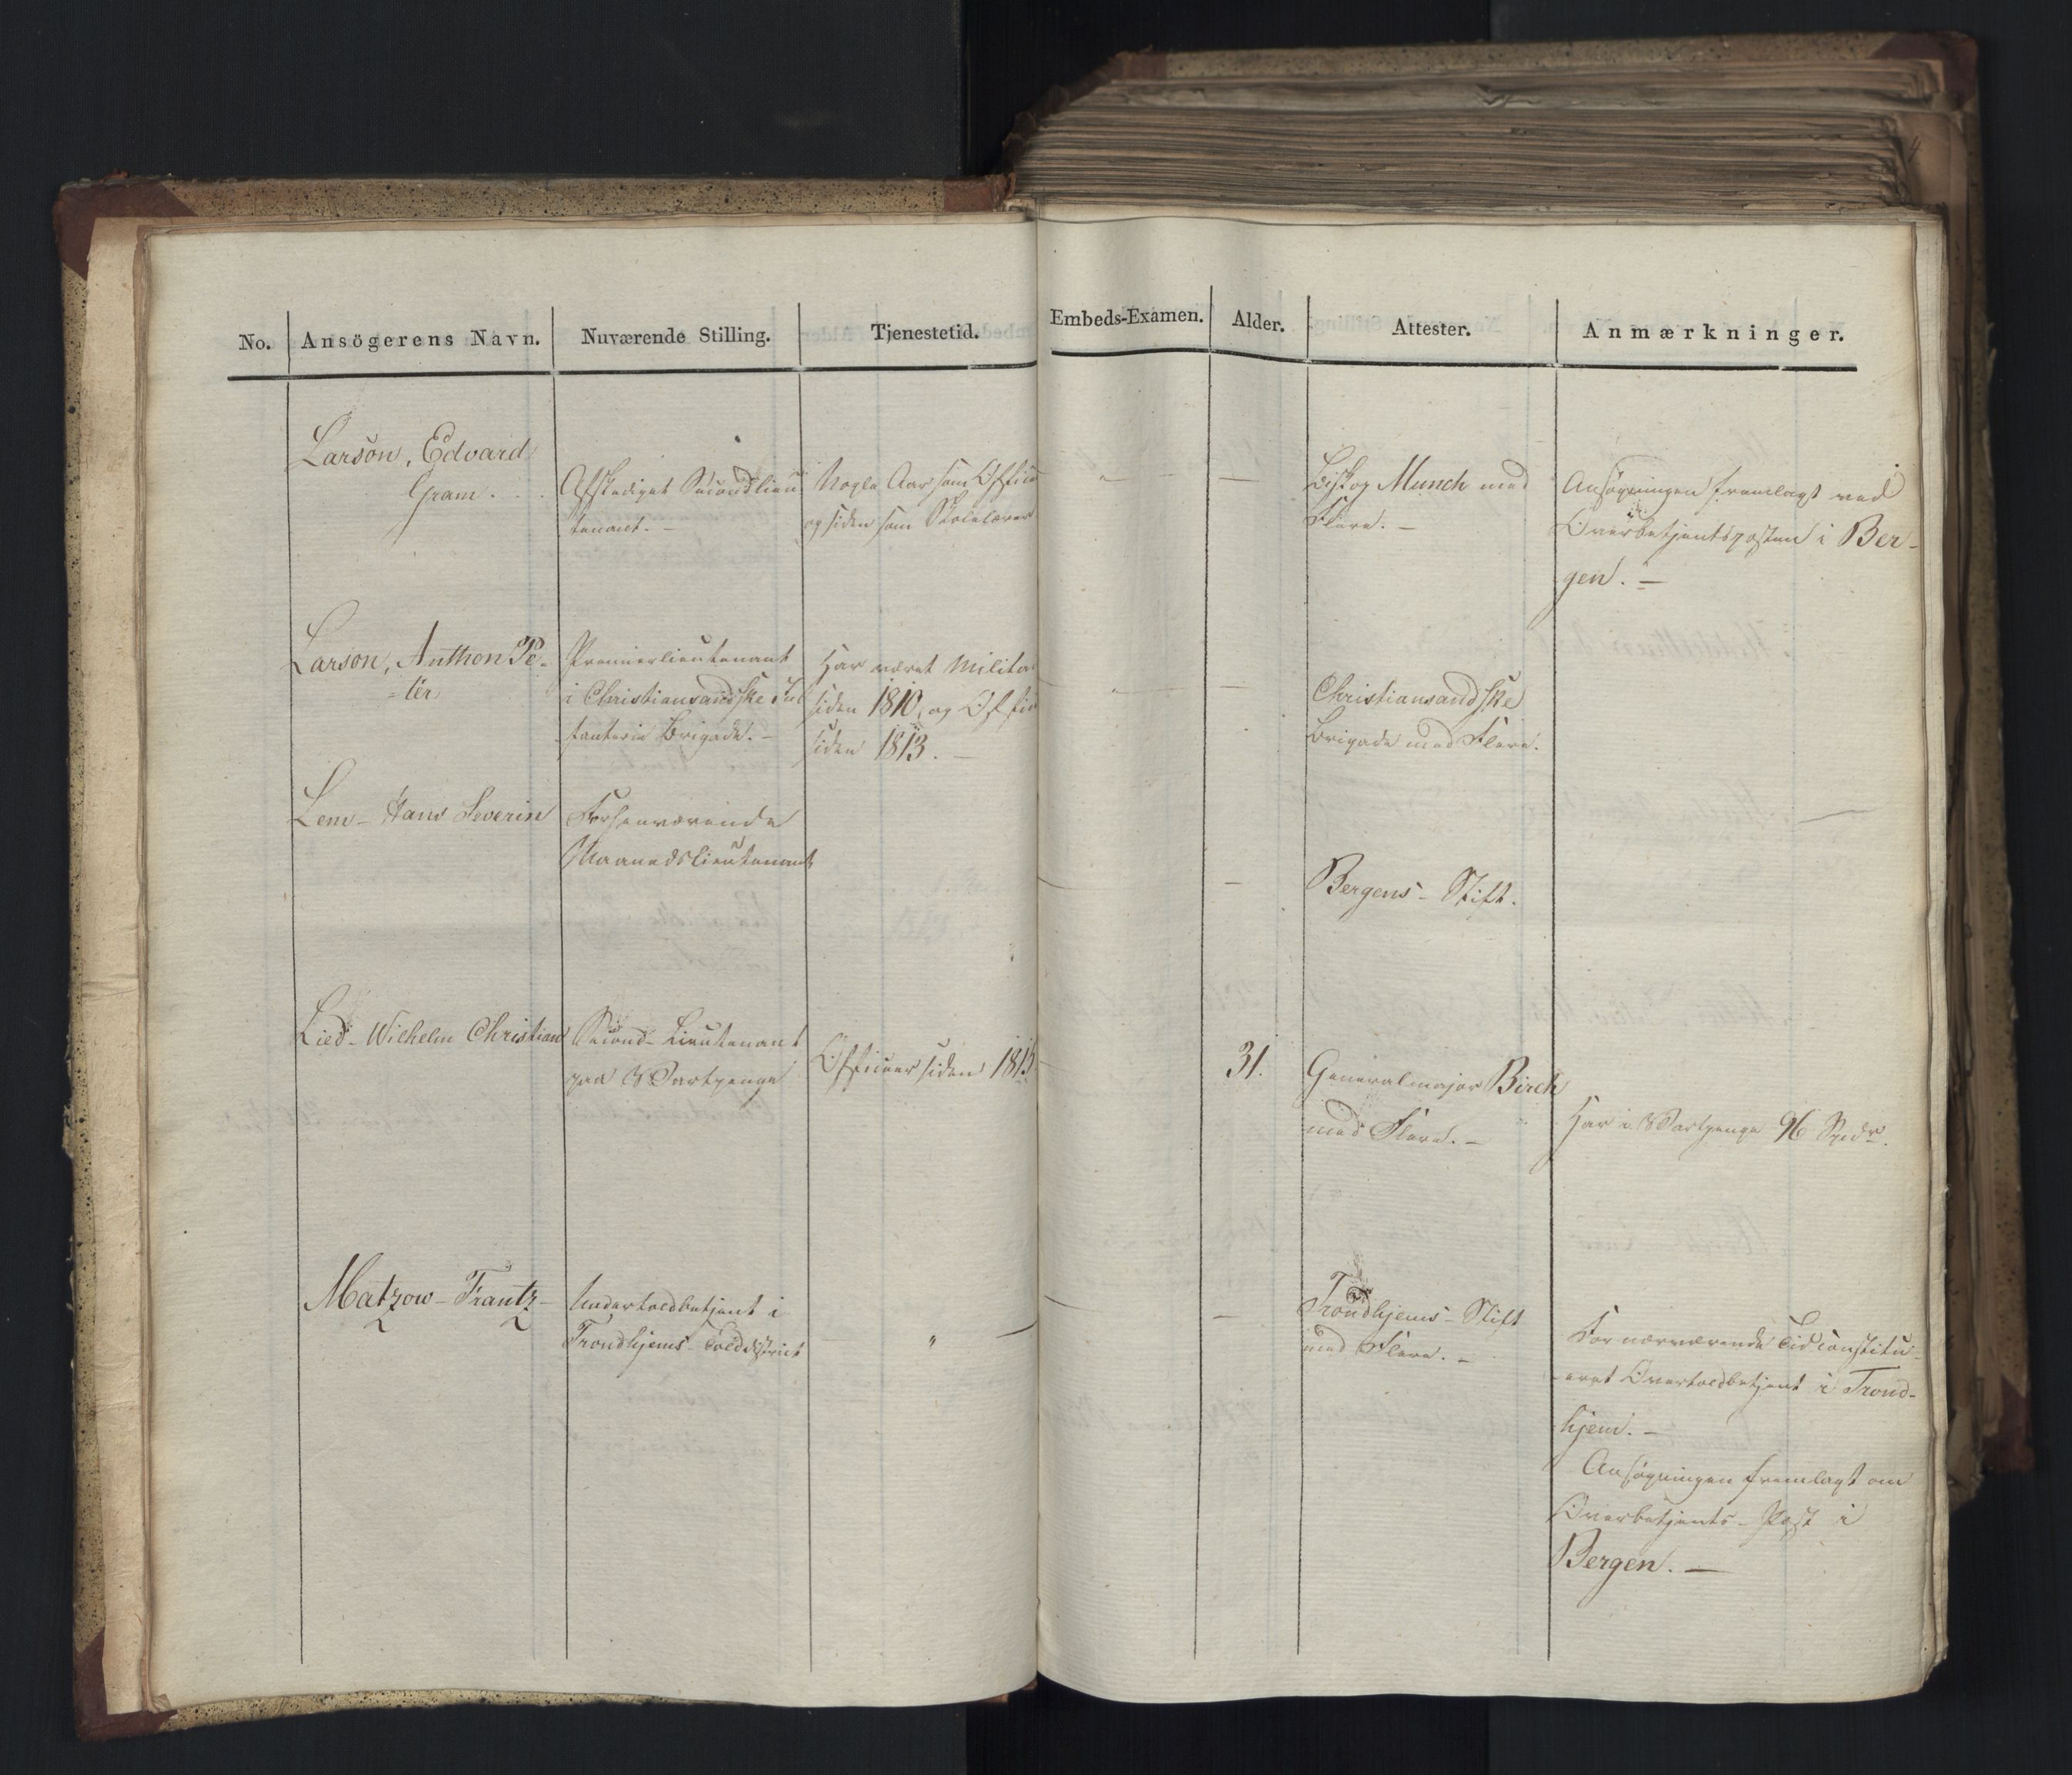 No. Ansögerens Navn. Nuværende Stilling. Tjenestetid. Embeds-Examen. Alder. Attester. Anmærkninger.
Larson, Edvard
Gram.
Afskediget Secondlieu
tenant. –
Nogle Aar som Offic
og siden som Skolelærer
" –
–
Biskop Munch med
Flere. –
Ansøgningen fremlagt ved
Overbetjentsposten i Ber-
gen. –
Larson, Anthon Pe-
-ter
Premierlieutenant
i Christiansandske In
fanterie Brigade. –
Har været Milita
siden 1810, og Offic
siden 1813. –
" –
–
Christiansandske
Brigade med Flere.
Lem – Hans Severin
Forhenværende
Maanedslieutenant
–
Bergens – Stift.
Lied – Wilhelm Christian
Second-Lieutenant
paa Vartpenge
Officeer siden 1815
31.
Generalmajor Birch
med Flere. –
Har i Vartpenge 96 Spdr.
Matzow – Frantz –
Undertoldbetjent i
Trondhjems Tolddistrict
– " –
–
Trondhjems – Stift
med Flere. –
For nærværende Tid constitu-
-eret Overtoldbetjent i Trond-
hjem. –
Ansøgningen fremlagt om
Overbetjents – Post i
Bergen. –